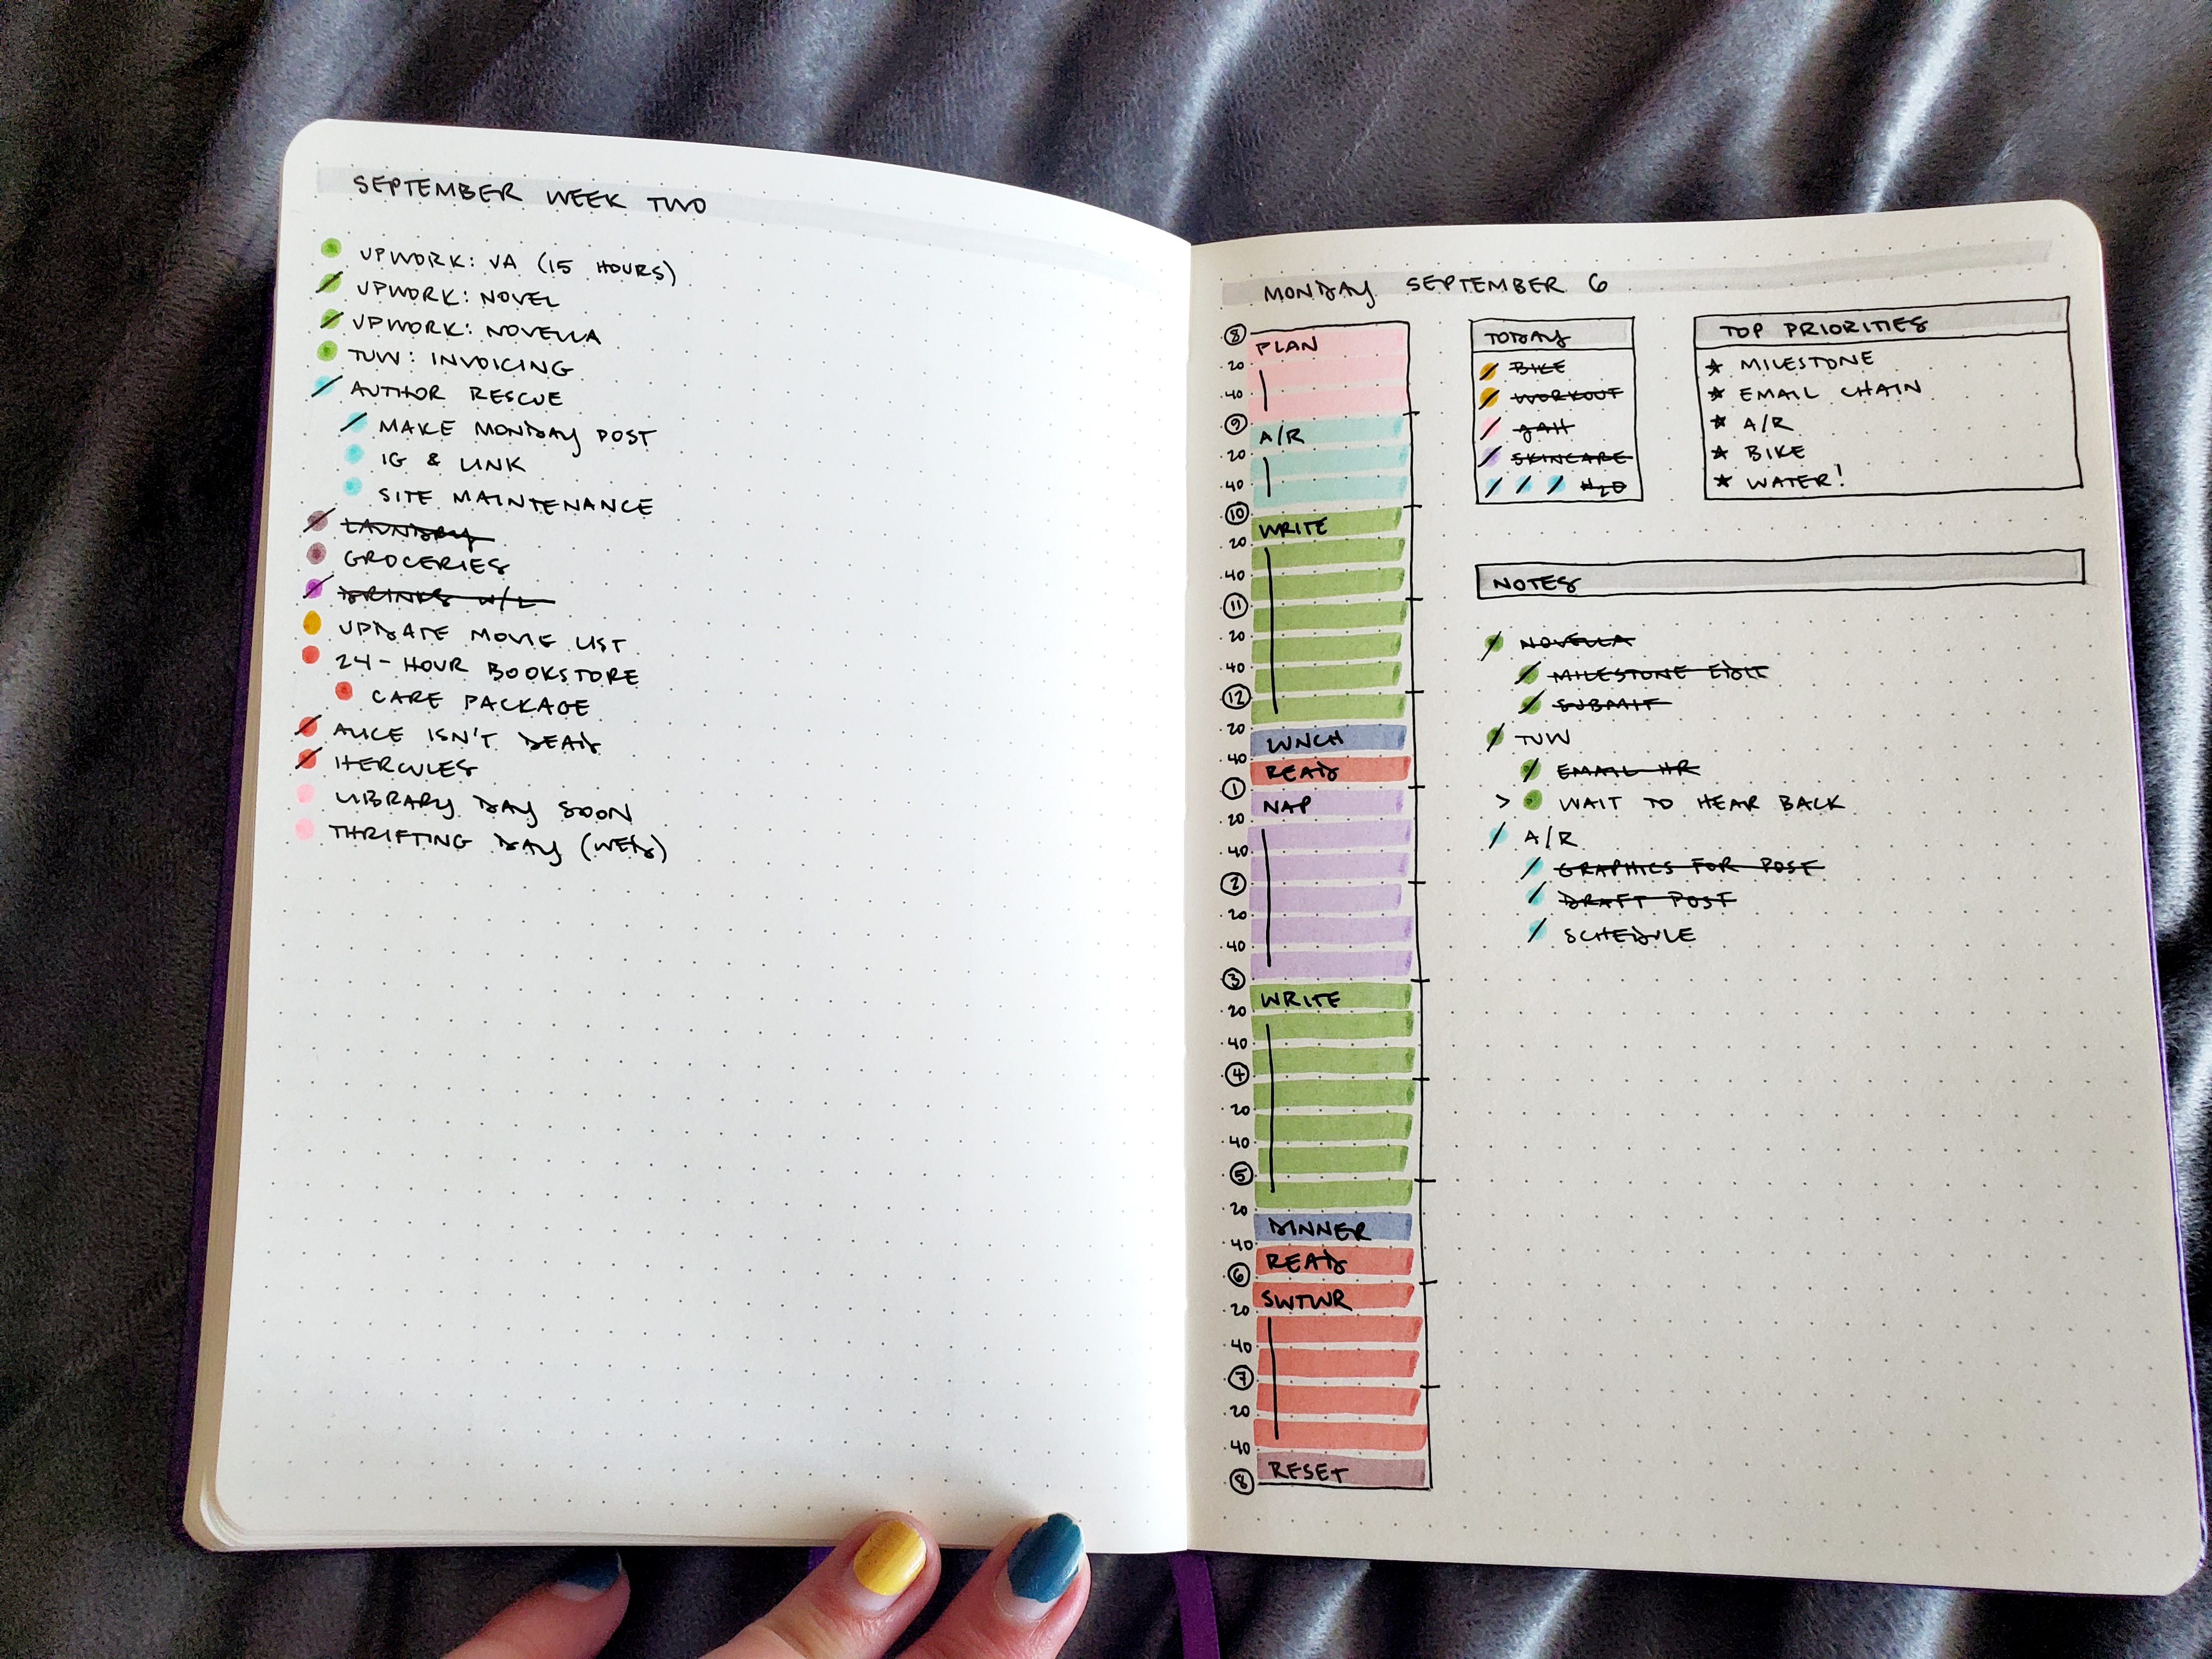 SEPTEMBER WEEK TWO
UPWORK: VA (15 HOURS)
UPWORK: NOVEL
UPWORK: NOVELLA
TUW: INVOICING
AUTHOR RESCUE
MAKE MONDAY POST
IG & LINK
SITE MAINTENANCE
LAUNDRY
GROCERIES
DRINKS W/L
UPDATE MOVIE LIST
24-HOUR BOOKSTORE
CARE PACKAGE
ALICE ISN'T DEAD
HERCULES
LIBRARY DAY SOON
THRIFTING DAY (WED)
MONDAY SEPTEMBER 6
8 PLAN
20
40
9 A/R
20
40
10 WRITE
20
40
11
20
40
12
20 LUNCH
40 READ
1 NAP
20
40
2
20
40
3 WRITE
20
40
4
20
40
5
20 DINNER
40 READ
6 SWTWR
20
40
7
20
40 RESET
8
TODAY
BIKE
WORKOUT
SKINCARE
H2O
TOP PRIORITIES
★ MILESTONE
★ EMAIL CHAIN
★ A/R
★ BIKE
★ WATER!
NOTES
NOVELLA
MILESTONE EDIT
SUBMIT
TUW
EMAIL HR
> WAIT TO HEAR BACK
A/R
GRAPHICS FOR POST
DRAFT POST
SCHEDULE